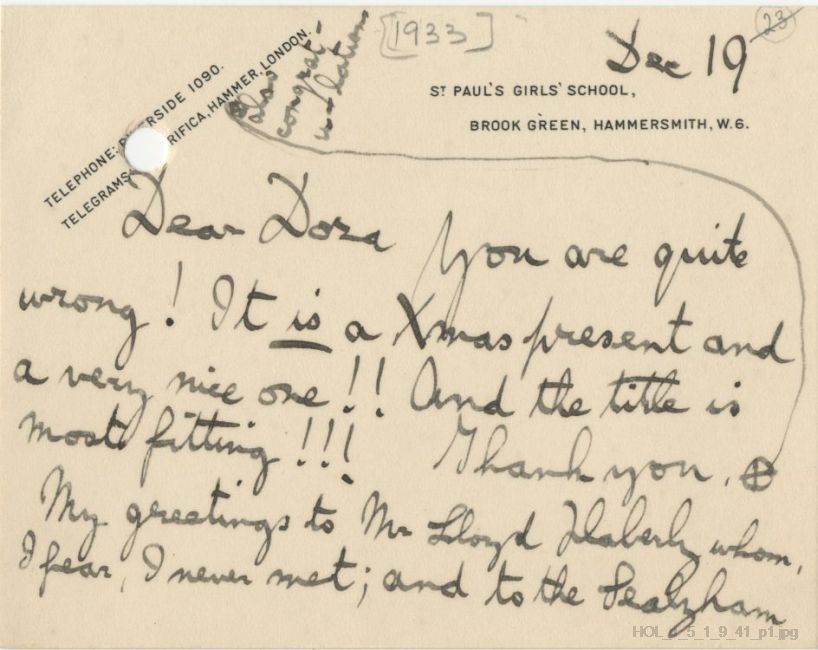 [1933]
23
Dec 19
ST PAUL'S GIRLS' SCHOOL,
BROOK GREEN, HAMMERSMITH, W.6.
TELEPHONE: RIVERSIDE 1090.
TELEGRAMS RIFICA, HAMMER, LONDON.
also
congrat-
u-lations
Dear Dora You are quite
wrong! It is a Xmas present and
a very nice one!! And the title is
most fitting!!! Thank you. ⊕
My greetings to Mr Lloyd Haberly whom,
I fear, I never met; and to the Sealyham
HOL_5_1_9_41_p1.jpg